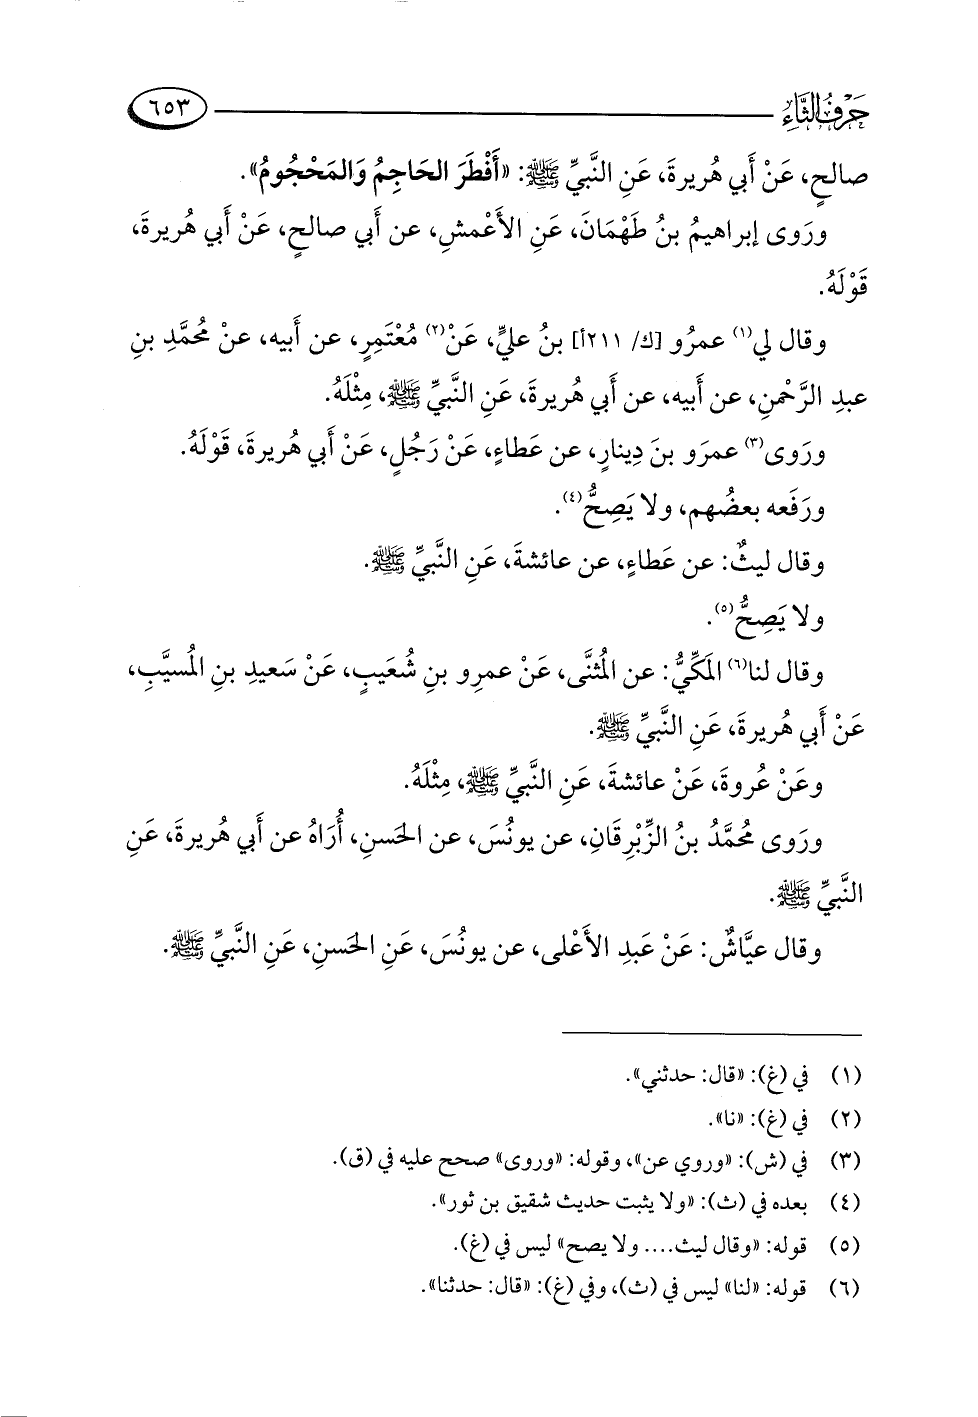 حَرْفُ الثَّاءِ ٦٥٣
صالحٍ، عَنْ أَبي هُريرةَ، عَنِ النَّبيِّ ﷺ: «أَفْطَرَ الحَاجِمُ وَالمَحْجُومُ».
ورَوى إبراهيمُ بنُ طَهْمَانَ، عَنِ الأَعْمشِ، عن أَبي صالحٍ، عَنْ أَبي هُريرةَ،
قَوْلَهُ.
وقال لي(١) عمرُو [ك/ ٢١١أ] بنُ عليٍّ، عَنْ(٢) مُعْتَمِرٍ، عن أَبيه، عنْ مُحمَّدِ بنِ
عبدِ الرَّحْمنِ، عن أَبيه، عن أَبي هُريرةَ، عَنِ النَّبيِّ ﷺ، مِثْلَهُ.
ورَوى(٣) عمرَو بنَ دِينارٍ، عن عَطاءٍ، عَنْ رَجُلٍ، عَنْ أَبي هُريرةَ، قَوْلَهُ.
ورَفَعه بعضُهم، ولا يَصِحُّ(٤).
وقال ليثٌ: عن عَطاءٍ، عن عائشةَ، عَنِ النَّبيِّ ﷺ.
ولا يَصِحُّ(٥).
وقال لنا(٦) المَكِّيُّ: عن المُثنَّى، عَنْ عمرِو بنِ شُعَيبٍ، عَنْ سَعيدِ بنِ المُسيَّبِ،
عَنْ أَبي هُريرةَ، عَنِ النَّبيِّ ﷺ.
وعَنْ عُروةَ، عَنْ عائشةَ، عَنِ النَّبيِّ ﷺ، مِثْلَهُ.
ورَوى مُحمَّدُ بنُ الزِّبْرِقَانِ، عن يونُسَ، عن الحَسنِ، أُرَاهُ عن أَبي هُريرةَ، عَنِ
النَّبيِّ ﷺ.
وقال عيَّاشٌ: عَنْ عَبدِ الأَعْلى، عن يونُسَ، عَنِ الحَسنِ، عَنِ النَّبيِّ ﷺ.
(١) في (غ): «قال: حدثني».
(٢) في (غ): «نا».
(٣) في (ش): «وروي عن»، وقوله: «وروى» صحح عليه في (ق).
(٤) بعده في (ث): «ولا يثبت حديث شقيق بن ثور».
(٥) قوله: «وقال ليث.... ولا يصح» ليس في (غ).
(٦) قوله: «لنا» ليس في (ث)، وفي (غ): «قال: حدثنا».